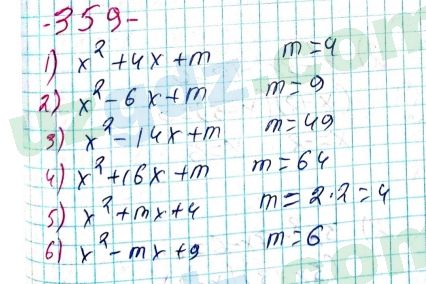 -359-
1) x² + 4x + m m = 4
2) x² - 6x + m m = 9
3) x² - 14x + m m = 49
4) x² + 16x + m m = 64
5) x² + mx + 4 m = 2·2 = 4
6) x² - mx + 9 m = 6